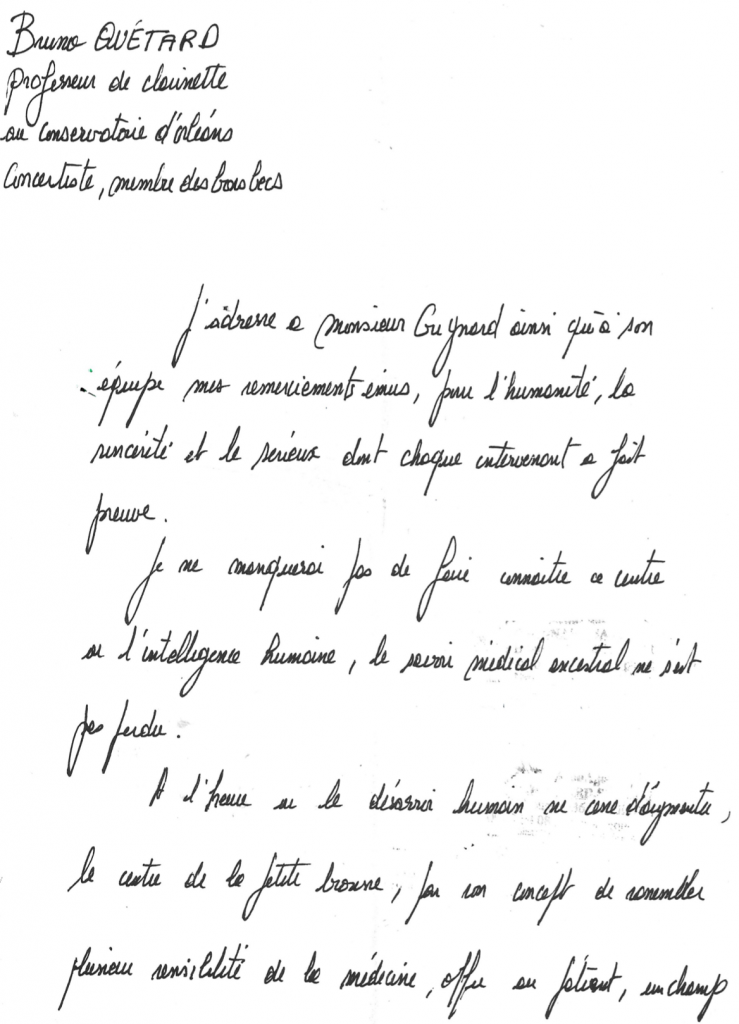 Bruno QUÉTARD
professeur de clarinette
au conservatoire d'orléans
Concertiste, membre des bons becs
J'adresse a monsieur Guynard ainsi qu'à son
équipe mes remerciements émus, pour l'humanité, la
sincérité et le sérieux dont chaque intervenant a fait
preuve.
Je ne manquerai pas de faire connaitre ce centre
ou l'intelligence humaine, le savoir médical ancestral ne s'est
pas perdu.
A l'heure ou le désarroi humain ne cesse d'augmenter,
le centre de la petite bronne, par son concept de rassembler
plusieurs sensibilité de la médecine, offre au patient, un champ